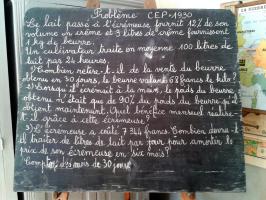 Problème CEP-1930
Le lait passé à l'écrémeuse fournit 12% de son
volume en crème et 3 litres de crème fournissent
1 kg de beurre.
Un cultivateur traite en moyenne 100 litres de
lait par 24 heures.
1) Combien retire-t-il de la vente du beurre
obtenu en 30 jours, le beurre valant 68 francs le kilo?
2) Lorsqu'il écrémait à la main, le poids du beurre
obtenu n'était que de 90% du poids du beurre qu'il
obtient maintenant. Quel bénéfice mensuel réalise-
t-il grâce à cette écrémeuse?
3) L'écrémeuse a coûté 7 344 francs. Combien devra-t-
il traiter de litres de lait par jour pour amortir le
prix de son écrémeuse en six mois?
Compter des mois de 30 jours